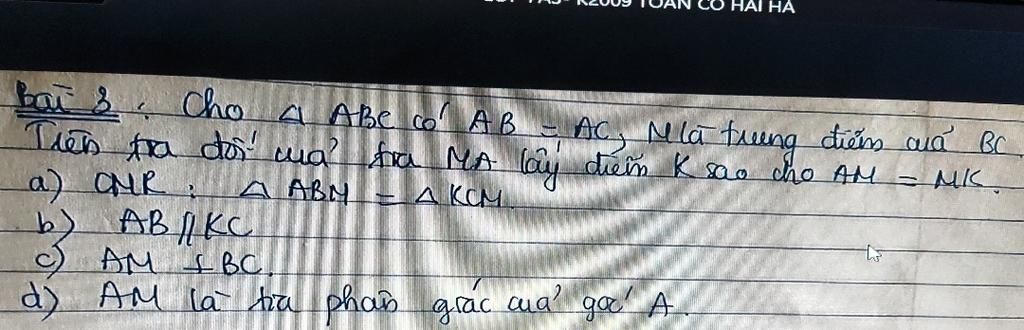 K2009 TOÁN CÔ HẢI HÀ
Bài 3 : Cho △ ABC có AB = AC, M là trung điểm của BC.
Trên tia đối của tia MA lấy điểm K sao cho AM = MK.
a) CMR : △ ABM = △ KCM.
b) AB // KC
c) AM ⊥ BC.
d) AM là tia phân giác của góc A.